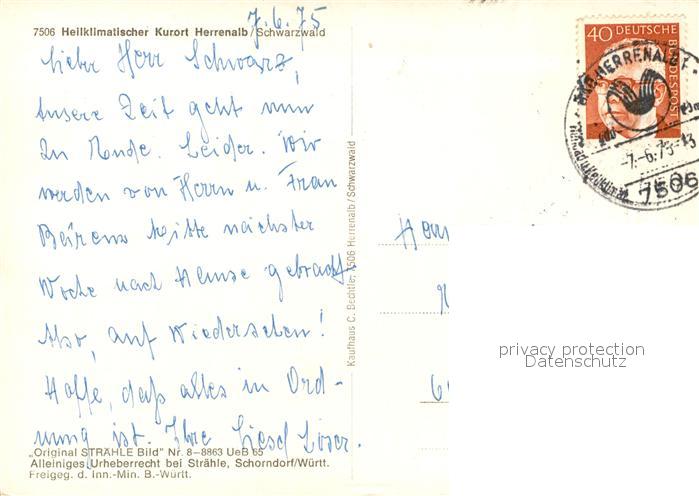 7.6.75
7506 Heilklimatischer Kurort Herrenalb/Schwarzwald
Lieber Herr Schwarz,
unsere Zeit geht nun
zu Ende. Leider. Wir
werden von Herrn u. Frau
Beirens Mitte nächster
Woche nach Hause gebracht.
Also, auf Wiedersehen!
Hoffe, daß alles in Ord-
nung ist. Ihre Liesel
„Original STRÄHLE Bild" Nr. 8-8863 UeB 65
Alleiniges Urheberrecht bei Strähle, Schorndorf/Württ.
Freigeg. d. Inn.-Min. B.-Württ.
Kaufhaus C. Bechtle, 7506 Herrenalb/Schwarzwald
40 DEUTSCHE BUNDESPOST
HERRENALB
-7.-6.75-13
7506
privacy protection
Datenschutz